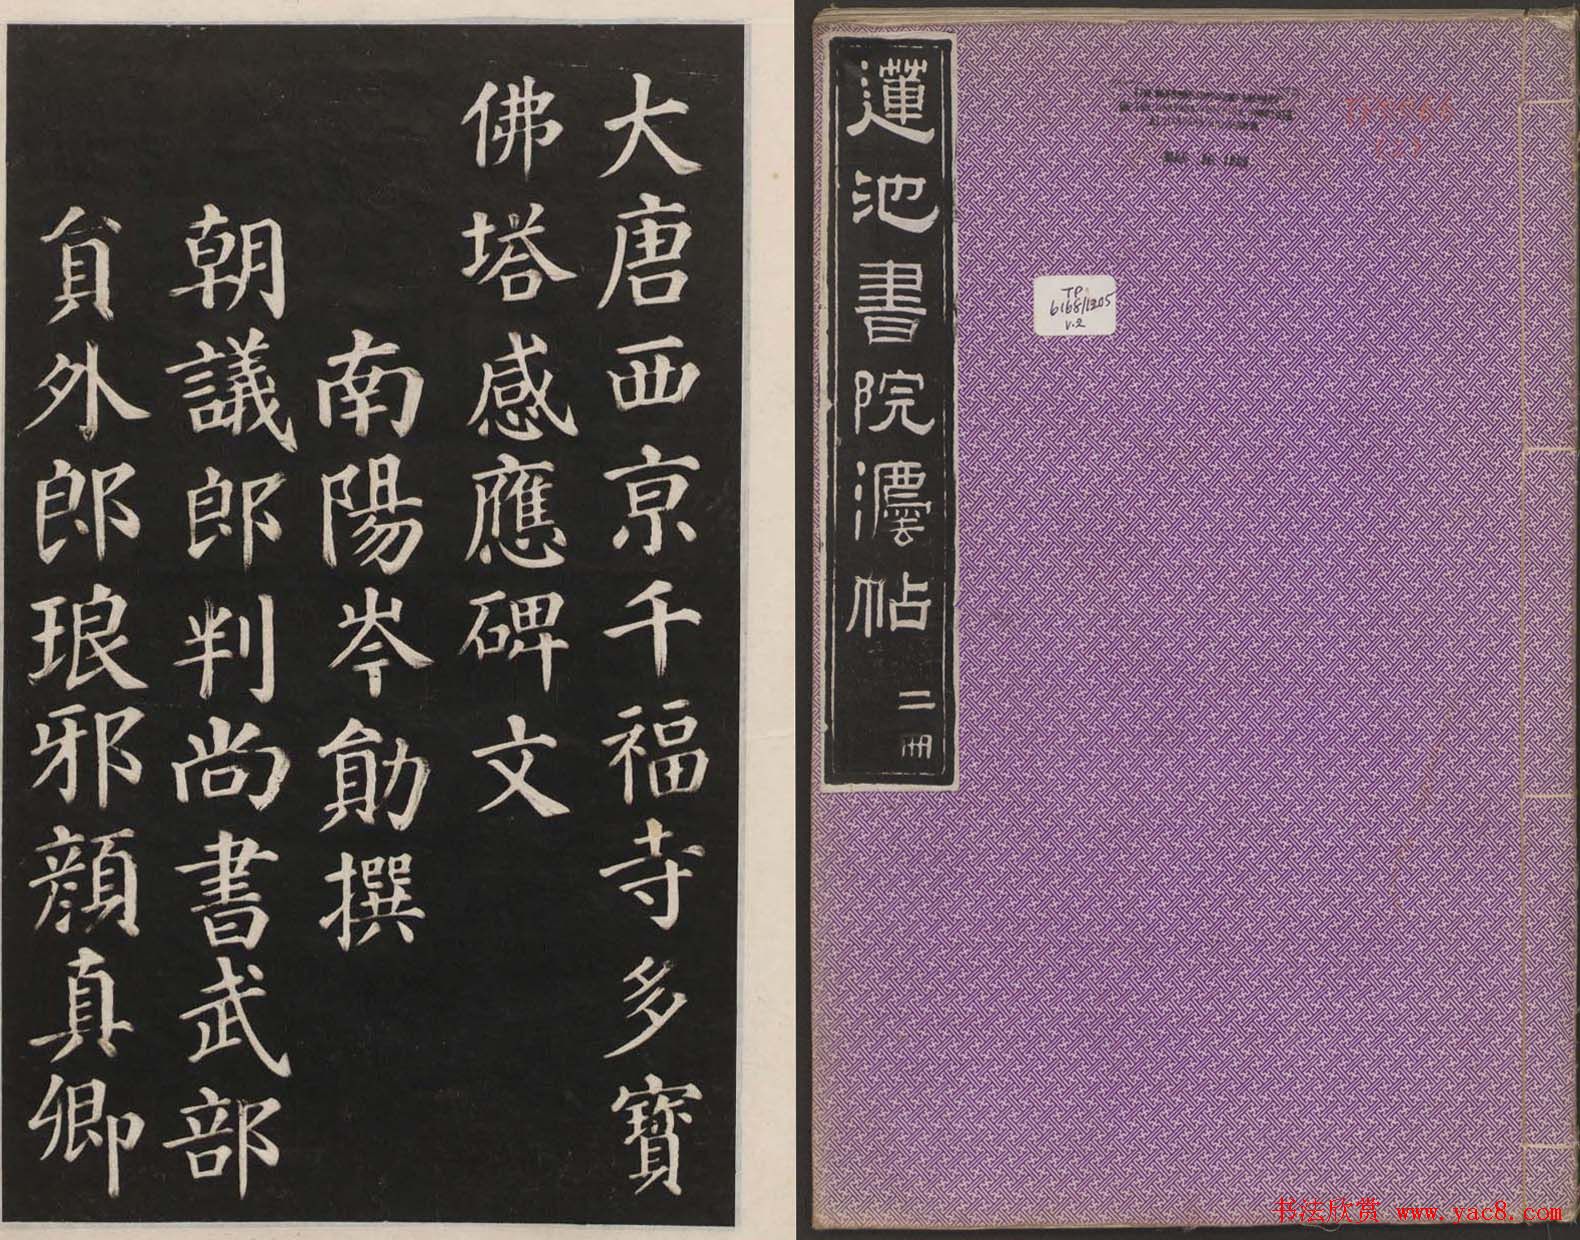 大唐西京千福寺多寶
佛塔感應碑文
南陽岑勛撰
朝議郎判尚書武部
員外郎琅邪顏真卿
蓮池書院灋帖
二冊
TP
6168/1305
v.2
书法欣赏 www.yac8.com